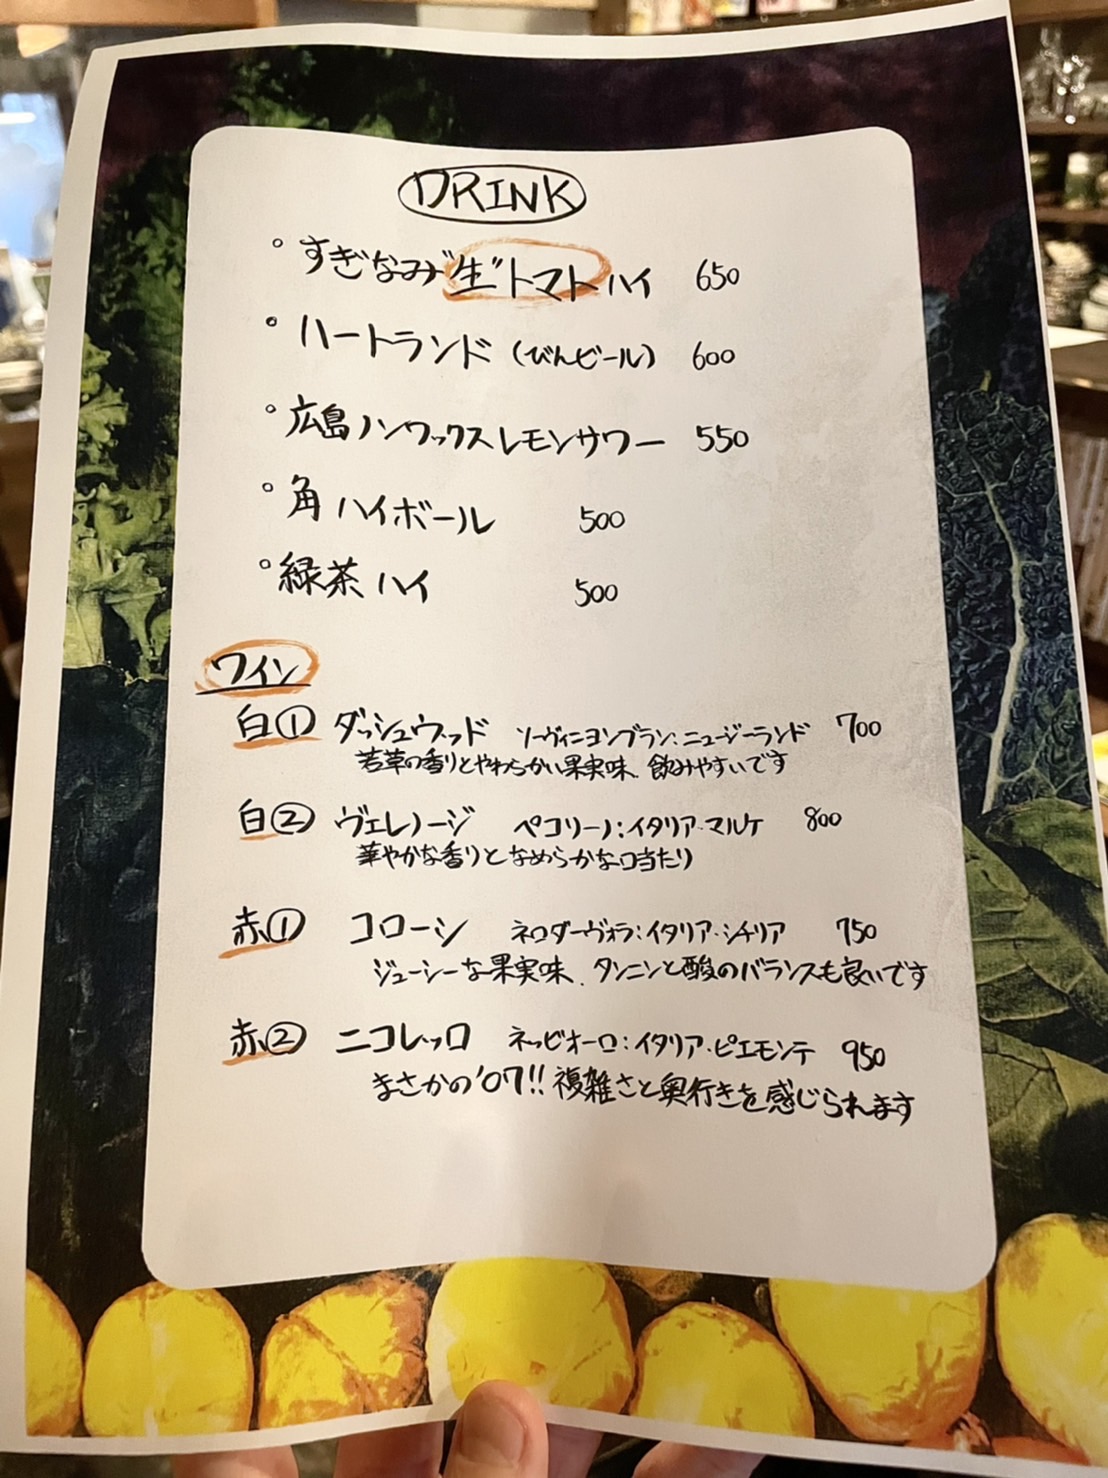 DRINK
。すぎなみ"生"トマトハイ 650
。ハートランド (びんビール) 600
。広島ノンワックスレモンサワー 550
。角ハイボール 500
。緑茶ハイ 500
ワイン
白① ダッシュウッド ソーヴィニヨンブラン:ニュージーランド 700
若草の香りとやわらかい果実味、飲みやすいです
白② ヴェレノージ ペコリーノ:イタリア・マルケ 800
華やかな香りとなめらかな口当たり
赤① コローシ ネロダーヴォラ:イタリア・シチリア 750
ジューシーな果実味、タンニンと酸のバランスも良いです
赤② ニコレッロ ネッビオーロ:イタリア・ピエモンテ 950
まさかの'07!! 複雑さと奥行きを感じられます